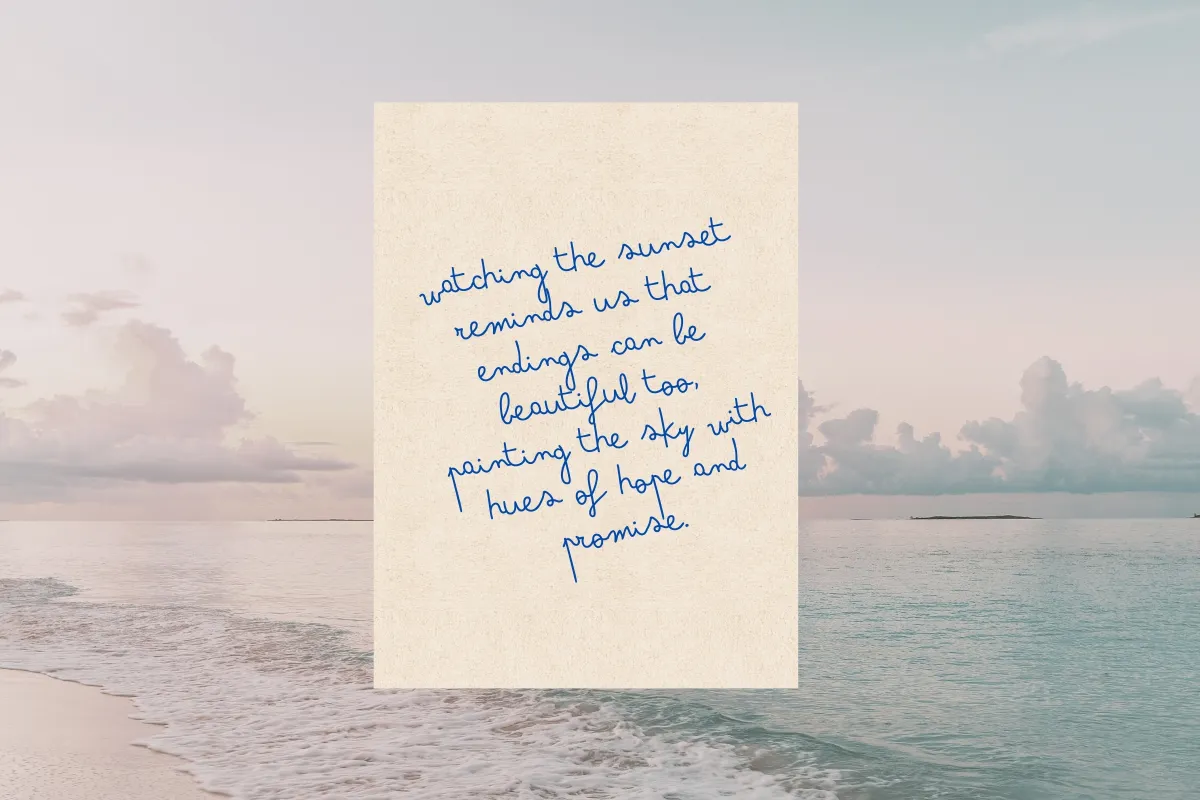 watching the sunset
reminds us that
endings can be
beautiful too,
painting the sky with
hues of hope and
promise.